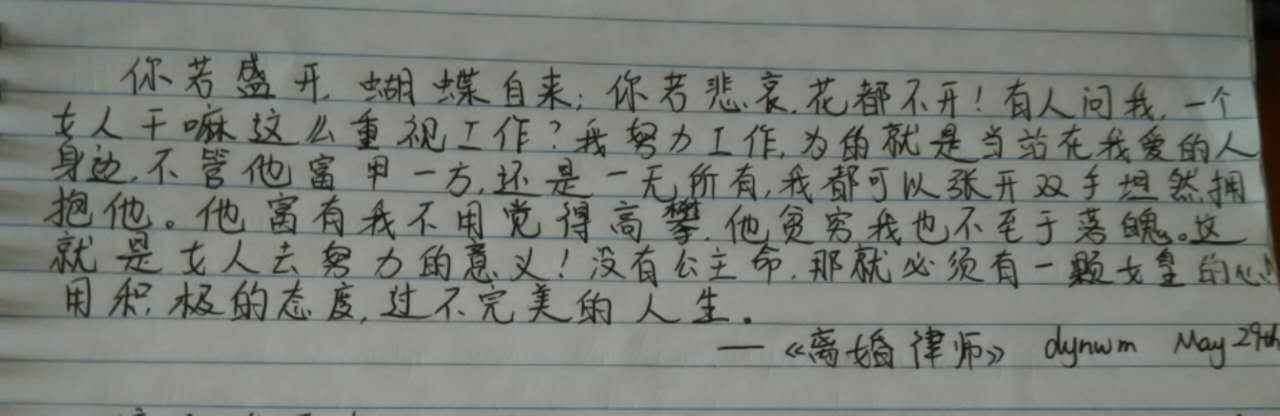 你若盛开，蝴蝶自来；你若悲哀，花都不开！有人问我，一个
女人干嘛这么重视工作？我努力工作，为的就是当站在我爱的人
身边，不管他富甲一方，还是一无所有，我都可以张开双手坦然拥
抱他。他富有我不用觉得高攀，他贫穷我也不至于落魄。这
就是女人去努力的意义！没有公主命，那就必须有一颗女皇的心！
用积极的态度，过不完美的人生。
——《离婚律师》 dynwm May 29th